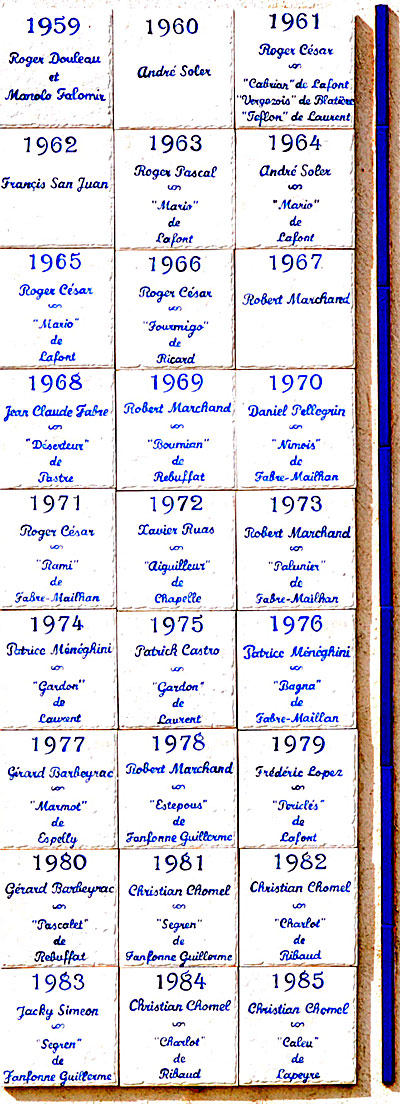 1959
Roger Douleau
et
Manolo Falomir
1960
André Soler
1961
Roger César
"Cabrian" de Lafont
"Vergezois" de Blatière
"Teflon" de Laurent
1962
Françis San Juan
1963
Roger Pascal
"Mario"
de
Lafont
1964
André Soler
"Mario"
de
Lafont
1965
Roger César
"Mario"
de
Lafont
1966
Roger César
"Fourmigo"
de
Ricard
1967
Robert Marchand
1968
Jean Claude Fabre
"Déserteur"
de
Pastre
1969
Robert Marchand
"Boumian"
de
Rebuffat
1970
Daniel Pellegrin
"Nimois"
de
Fabre-Mailhan
1971
Roger César
"Rami"
de
Fabre-Mailhan
1972
Xavier Ruas
"Aiguilleur"
de
Chapelle
1973
Robert Marchand
"Palunier"
de
Fabre-Mailhan
1974
Patrice Ménéghini
"Gardon"
de
Laurent
1975
Patrick Castro
"Gardon"
de
Laurent
1976
Patrice Ménéghini
"Bagna"
de
Fabre-Maillan
1977
Gérard Barbeyrac
"Marmot"
de
Espelly
1978
Robert Marchand
"Estepous"
de
Fanfonne Guillerme
1979
Frédéric Lopez
"Periclés"
de
Lafont
1980
Gérard Barbeyrac
"Pascalet"
de
Rebuffat
1981
Christian Chomel
"Segren"
de
Fanfonne Guillerme
1982
Christian Chomel
"Charlot"
de
Ribaud
1983
Jacky Simeon
"Segren"
de
Fanfonne Guillerme
1984
Christian Chomel
"Charlot"
de
Ribaud
1985
Christian Chomel
"Caleu"
de
Lapeyre